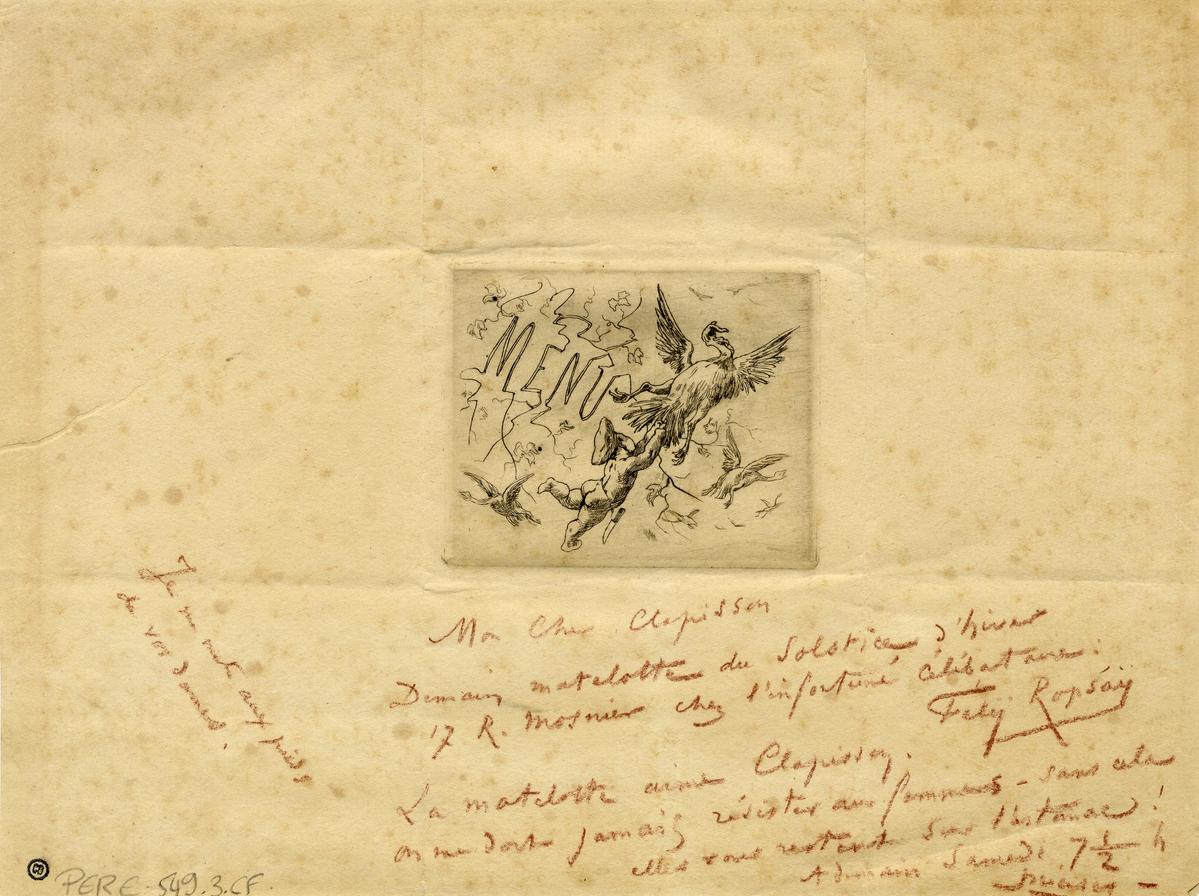 MENU
Mon Cher Clapisson
Demain matelotte du Solstice d'hiver
17 R. Mosnier chez l'infortuné célibataire :
Fély Ropsöÿ
La matelotte aime Clapisson.
on ne doit jamais résister aux femmes - sans cela
elles vous restent sur l'estomac !
A demain Samedi 7 1/2 h
précises -
Je me mets aux pieds
de vos dames.
PER E. 549.3.CF